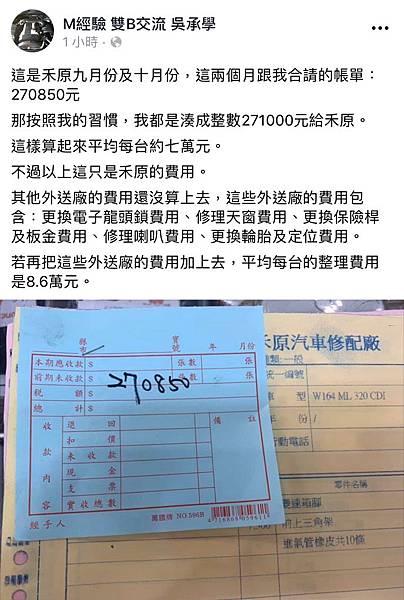 M經驗 雙B交流 吳承學
1 小時 ·
這是禾原九月份及十月份，這兩個月跟我合請的帳單：
270850元
那按照我的習慣，我都是湊成整數271000元給禾原。
這樣算起來平均每台約七萬元。
不過以上這只是禾原的費用。
其他外送廠的費用還沒算上去，這些外送廠的費用包
含：更換電子龍頭鎖費用、修理天窗費用、更換保險桿
及板金費用、修理喇叭費用、更換輪胎及定位費用。
若再把這些外送廠的費用加上去，平均每台的整理費用
是8.6萬元。
縣市 寶號 年 月份
本期應收款 $ 張數 張
前期未收款 $ 張數 張
稅額 $
總計 $
270850
收款內容
退回
扣價
未收款
現金
支票
實收總數
備註
經手人
萬國牌 NO 596B
4 716608 059611
禾原汽車修配廠
種類:一般
統一編號
車型 W164 ML 320 CDI
年份 /
行動電話
零件名稱
變速箱腳
前上三角架
進氣管橡皮共10條